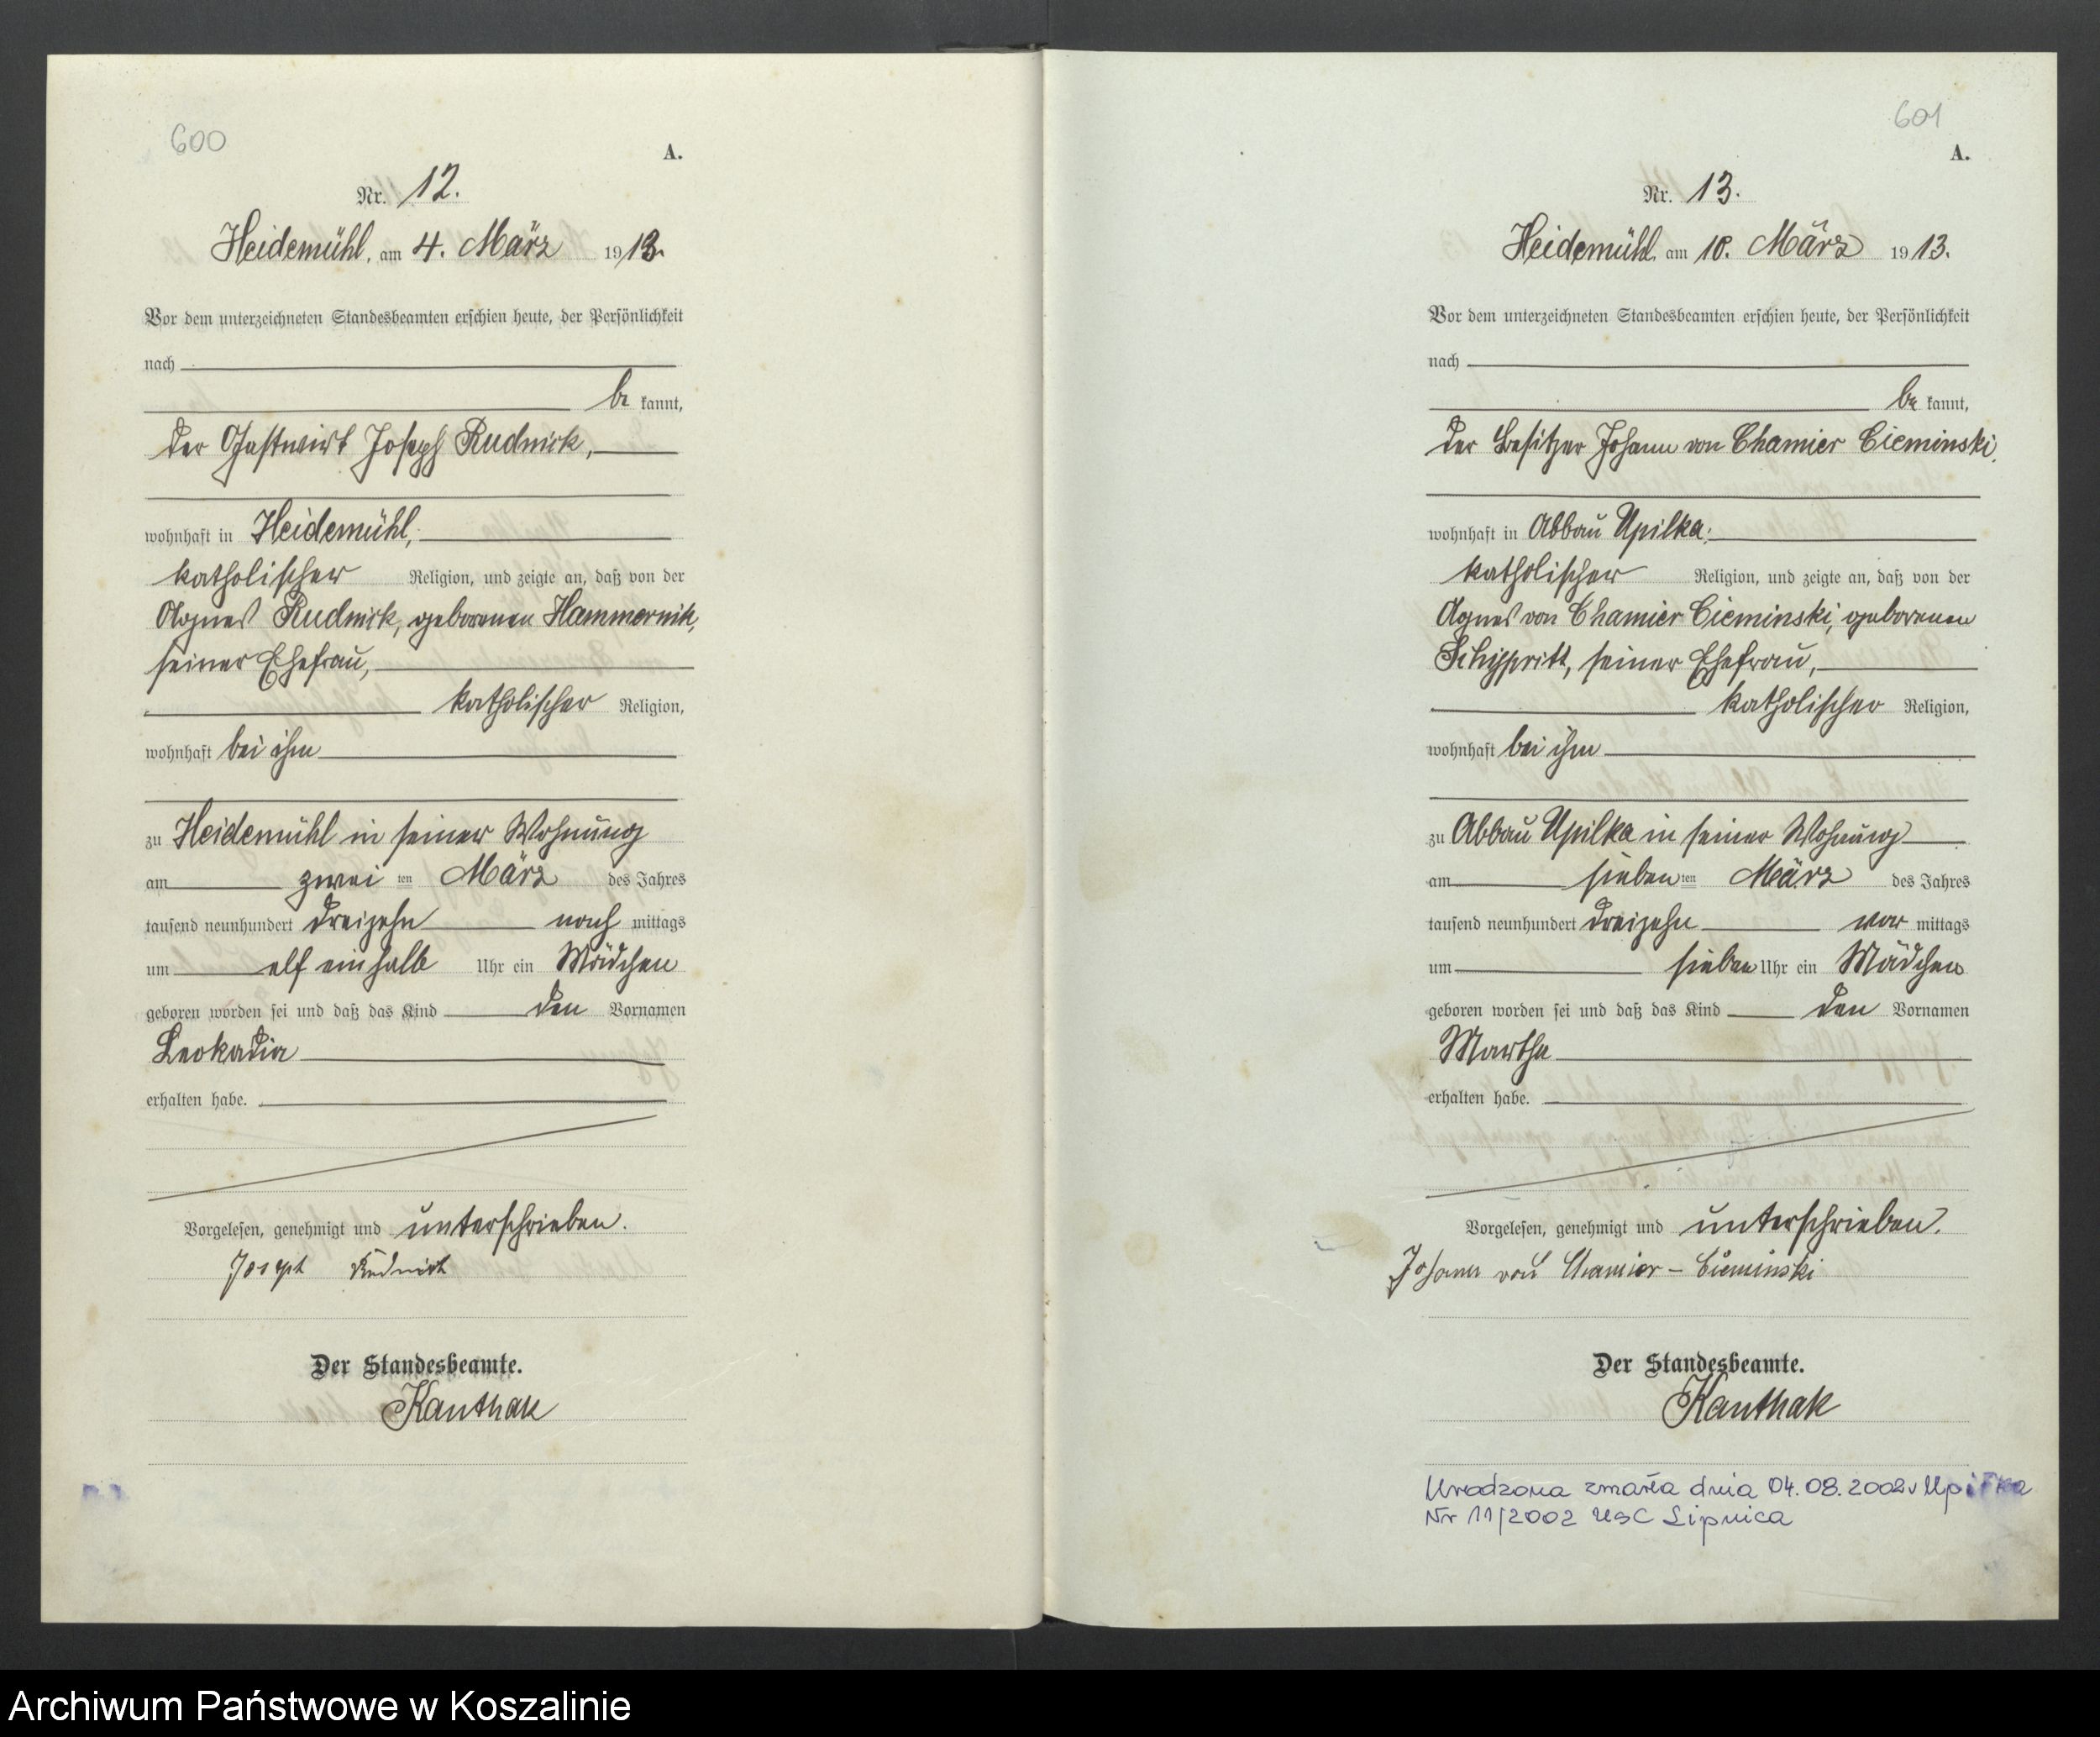 600
A.
Nr. 12.
Heidemühl, am 4. März 1913.
Vor dem unterzeichneten Standesbeamten erschien heute, der Persönlichkeit
nach
be kannt,
der Gastwirt Joseph Rudnick,
wohnhaft in Heidemühl,
katholischer Religion, und zeigte an, daß von der
Agnes Rudnick, geborenen Hammernik,
seiner Ehefrau,
katholischer Religion,
wohnhaft bei ihm
zu Heidemühl in seiner Wohnung
am zwei ten März des Jahres
tausend neunhundert dreizehn nach mittags
um elf einhalb Uhr ein Mädchen
geboren worden sei und daß das Kind den Vornamen
Leokadia
erhalten habe.
Vorgelesen, genehmigt und unterschrieben.
Joseph Rudnick
Der Standesbeamte.
Kanthak
601
A.
Nr. 13.
Heidemühl, am 10. März 1913.
Vor dem unterzeichneten Standesbeamten erschien heute, der Persönlichkeit
nach
be kannt,
der Besitzer Johann von Chamier Cieminski,
wohnhaft in Abbau Upilka,
katholischer Religion, und zeigte an, daß von der
Agnes von Chamier Cieminski, geborenen
Schypritt, seiner Ehefrau,
katholischer Religion,
wohnhaft bei ihm
zu Abbau Upilka in seiner Wohnung
am sieben ten März des Jahres
tausend neunhundert dreizehn vor mittags
um sieben Uhr ein Mädchen
geboren worden sei und daß das Kind den Vornamen
Martha
erhalten habe.
Vorgelesen, genehmigt und unterschrieben.
Johann von Chamier - Cieminski
Der Standesbeamte.
Kanthak
Urodzona zmarła dnia 04.08.2002 w Upiłka
Nr 11/2002 USC Lipnica
Archiwum Państwowe w Koszalinie